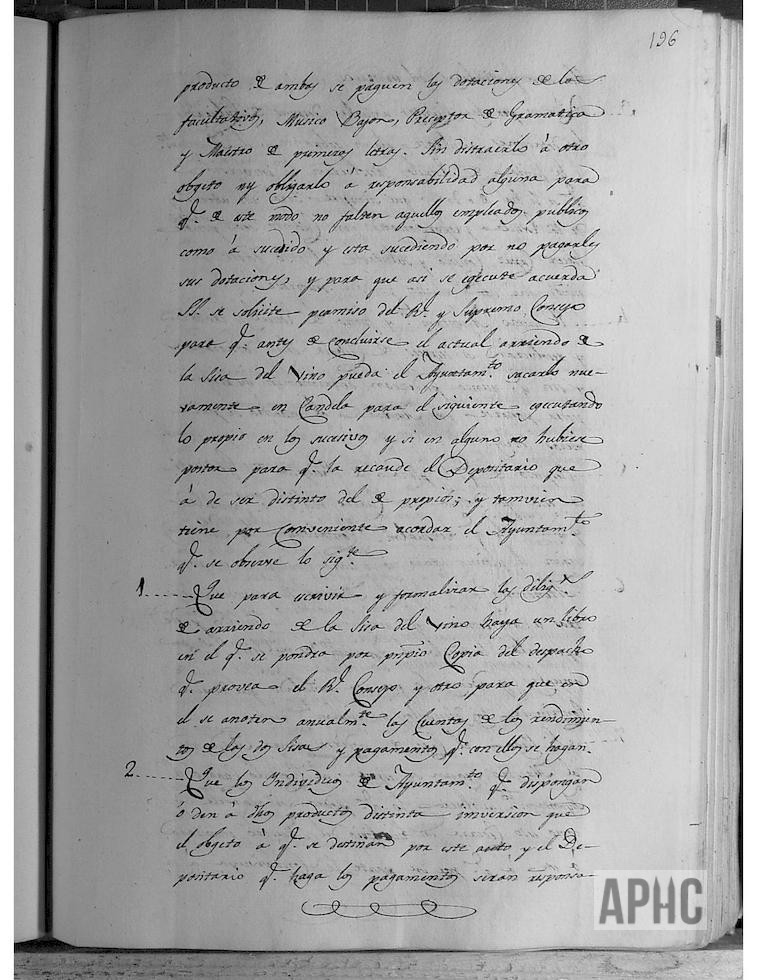 196
producto de ambas se paguen las dotaciones de los
facultativos, Musico Bajon, Preceptor de Gramatica
y Maestro de primeras letras. Sin distraerlo à otro
obgeto ny obligarlo à responsabilidad alguna para
q.e de este modo no falten aquellos empleados publicos
como à sucedido y esta sucediendo por no pagarles
sus dotaciones, y para que asi se egecute acuerda
SS. se solicite permiso del R.l y Supremo Consejo
para q.e antes de concluirse el actual arriendo de
la sisa del Vino pueda el Ayuntam.to sacarlo nue-
vamente en Candela para el siguiente egecutando
lo propio en los sucesivos y si en alguno no hubiese
postor para q.e la recaude el Depositario que
à de ser distinto del de propios; y tamvien
tiene por Conveniente acordar el Ayuntam.to
q.e se observe lo sig.te
1 Que para escrivir y formalizar las dilig.s
de arriendo de la Sisa del Vino haya un libro
en el q.e se pondra por prpio Copia del despacho
q.e provea el R.l Consejo y otro para que en
el se anoten anualm.te las Cuentas de los rendimien-
tos de las dos Sisas y pagamentos q.e con ellos se hagan.
2 Que los Individuos de Ayuntam.to q.e dispongan
ò den à dhos productos distinta inversion que
el obgeto à q.e se destinan por este auto y el De-
positario q.e haga los pagamentos seran responsa-
APHC